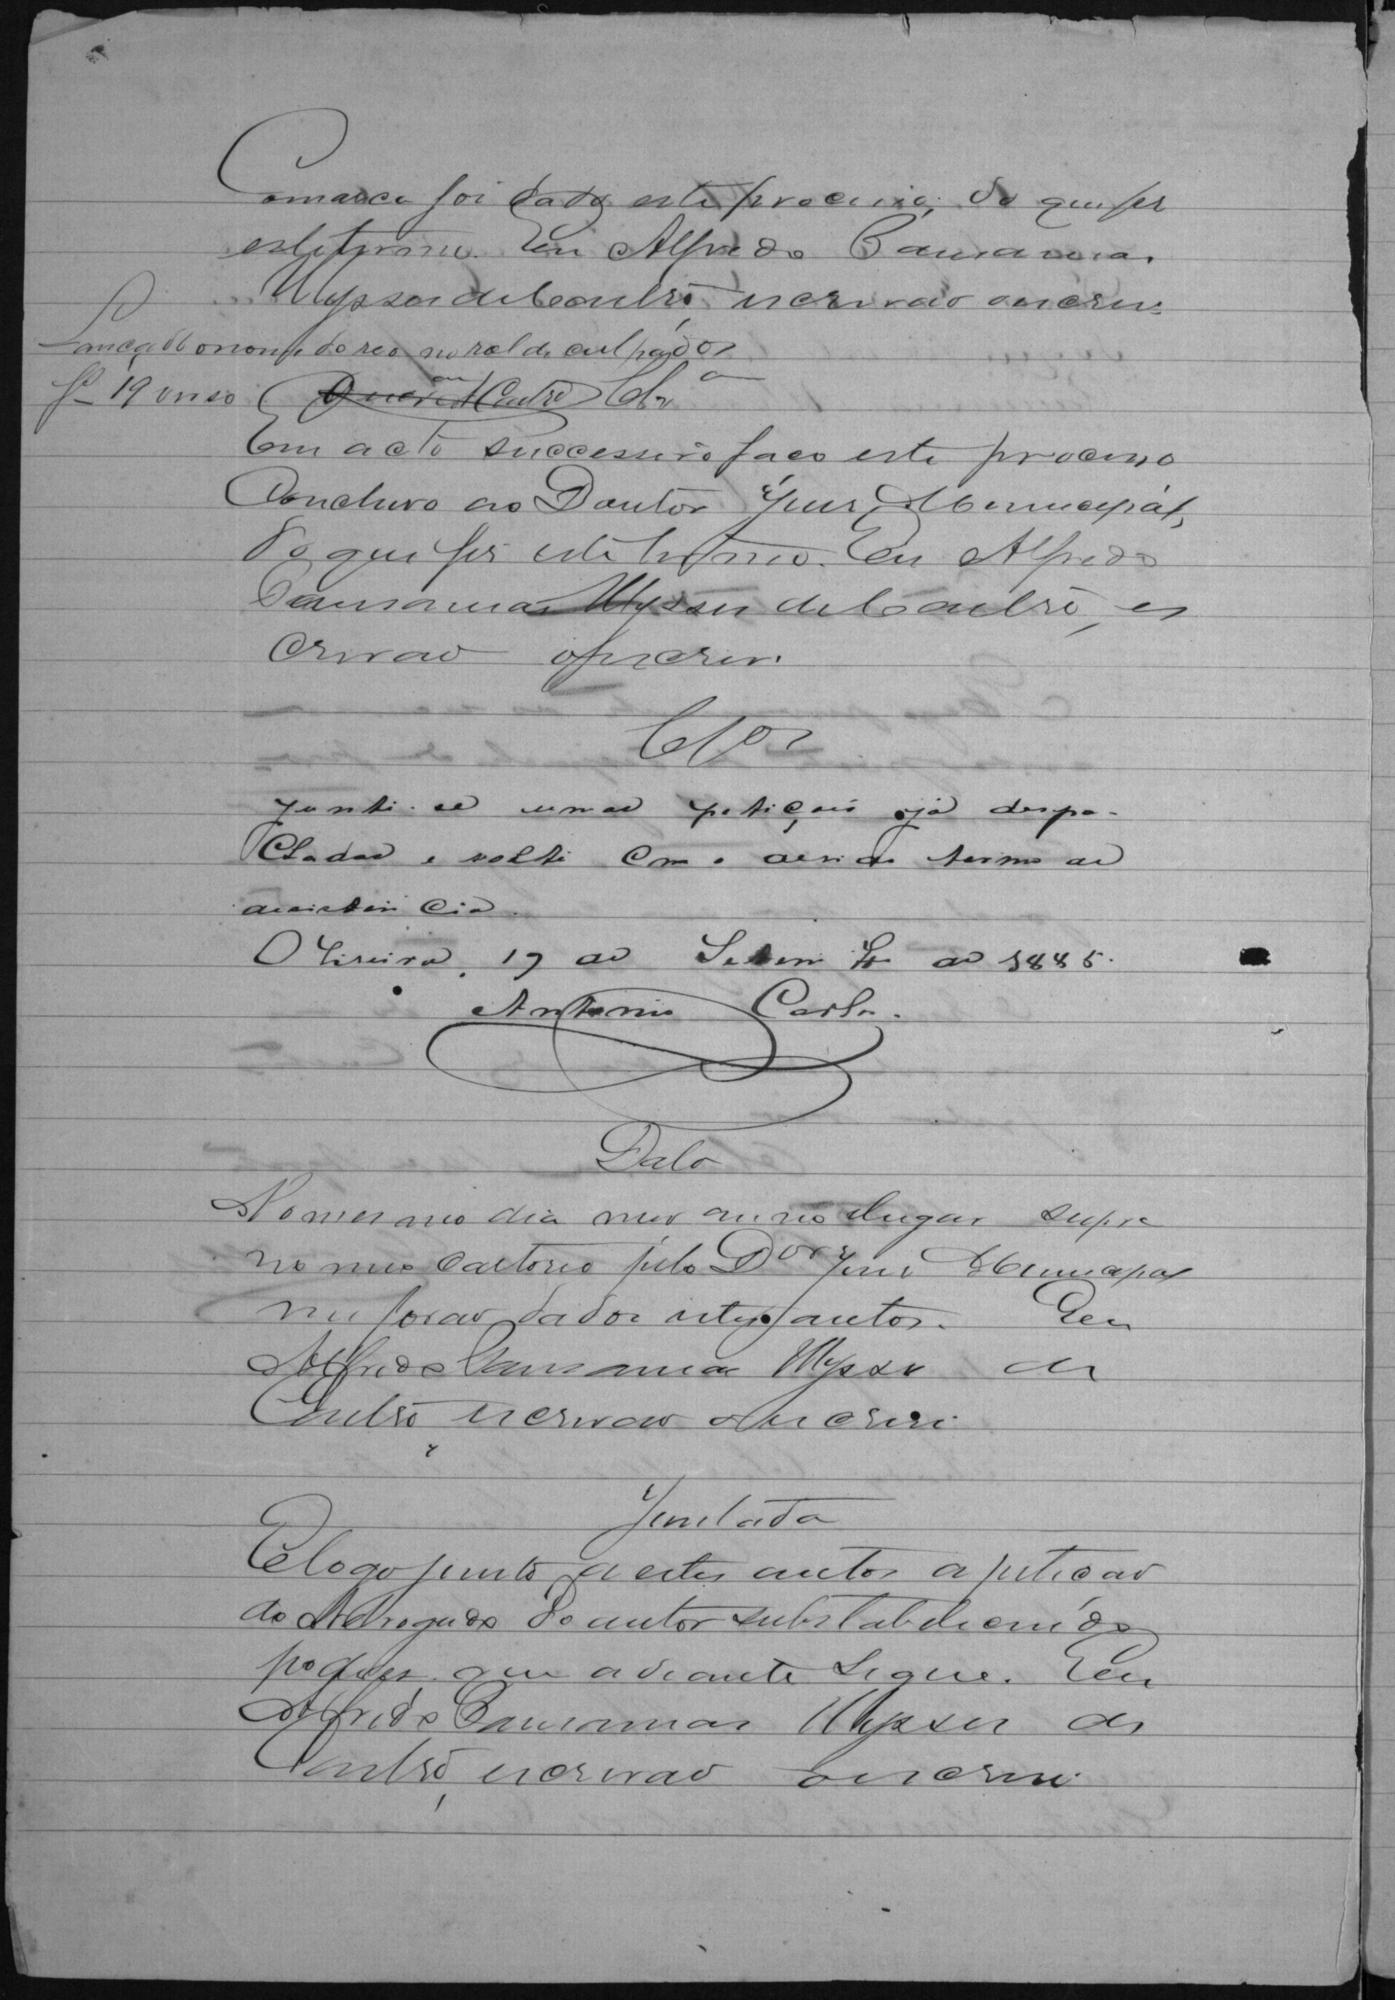 Comarca foi dado este processo, do que fis
este termo. Eu Alfredo Pausanias
Ulysses de Castro, escrivão o escrevi.
Lançado o nome do reo no rol de culpados
fl 19 verso Castro
Em acto successivo faço este processo
Concluso ao Doutor Juis Municipal,
do que fis este termo. Eu Alfredo
Pausanias Ulysses de Castro, es
crivão o escrevi.
Clos
Junte-se uma petição já despa-
chada e volte com o termo de
assistencia.
Oliveira, 17 de Setembro de 1885.
Antonio Carlos.
Data
No mesmo dia mes anno e lugar supra
no meo cartorio pelo Dor Juis Municipal
me forão dados estes autos. Eu
Alfredo Pausanias Ulysses de
Castro, escrivão o escrevi.
Juntada
E logo junto a estes autos a petição
do Advogado Doutor substabelecendo
poderes, que adeante segue. Eu
Alfredo Pausanias Ulysses de
Castro, escrivão o escrevi.